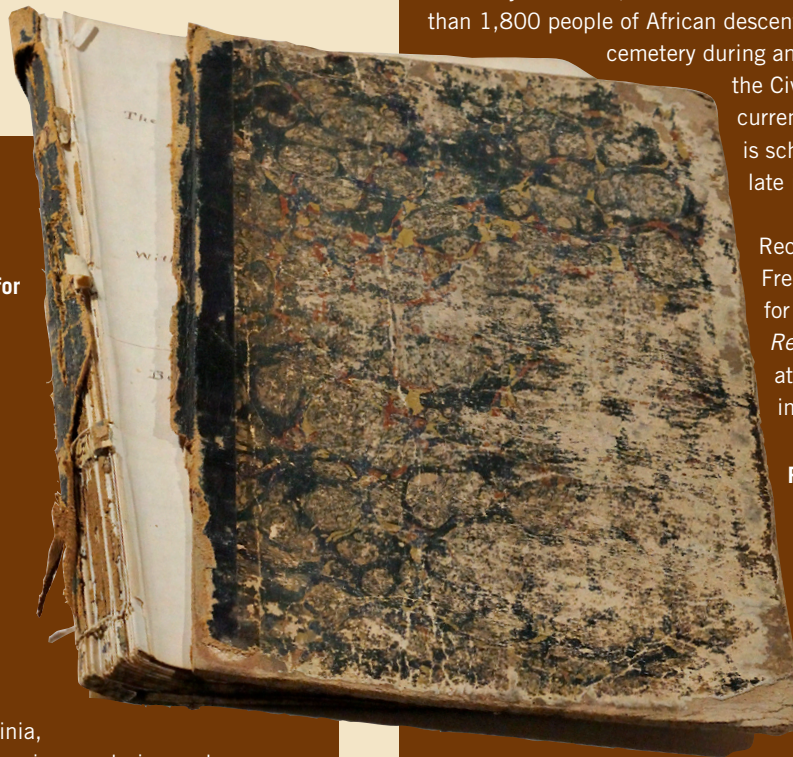 than 1,800 people of African descen
cemetery during an
the Civ
curren
is sch
late
Rec
Fre
for
Re
at
in
F
for
The
Wil
Be
inia,